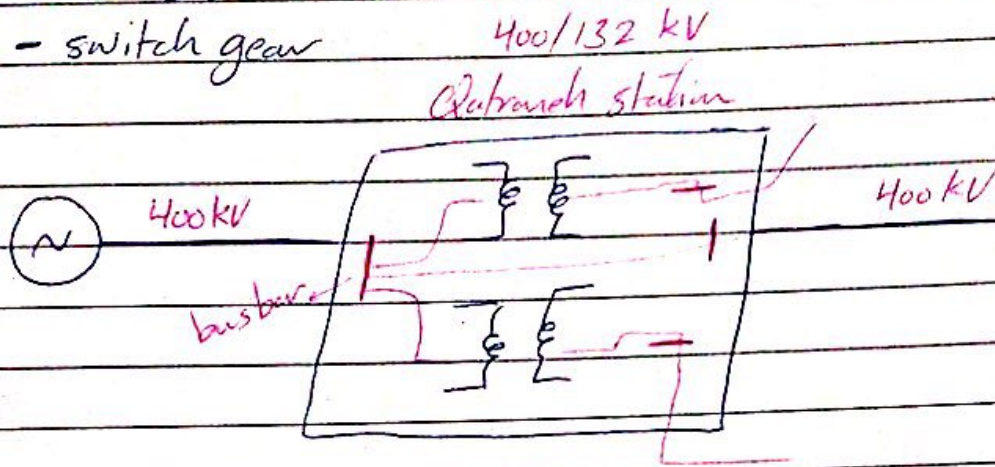 - switch gear
400/132 kV
Qatraneh station
400kV
400 kV
busbar